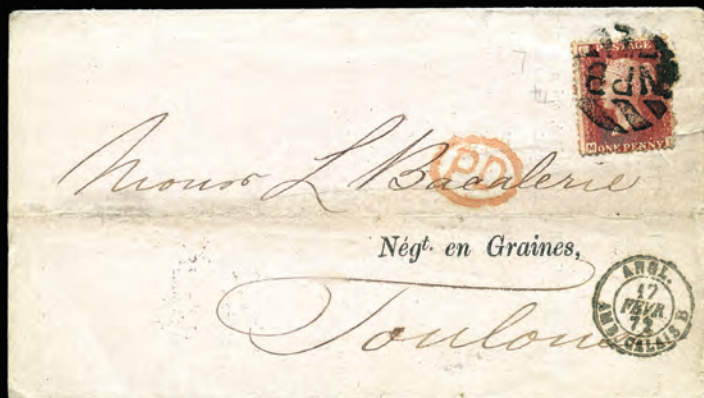 POSTAGE
ONE PENNY
M
PD
Monsr L Bacalerie
Négt. en Graines,
Toulouse
ANGL.
17
FEVR.
72
AMB. CALAIS B